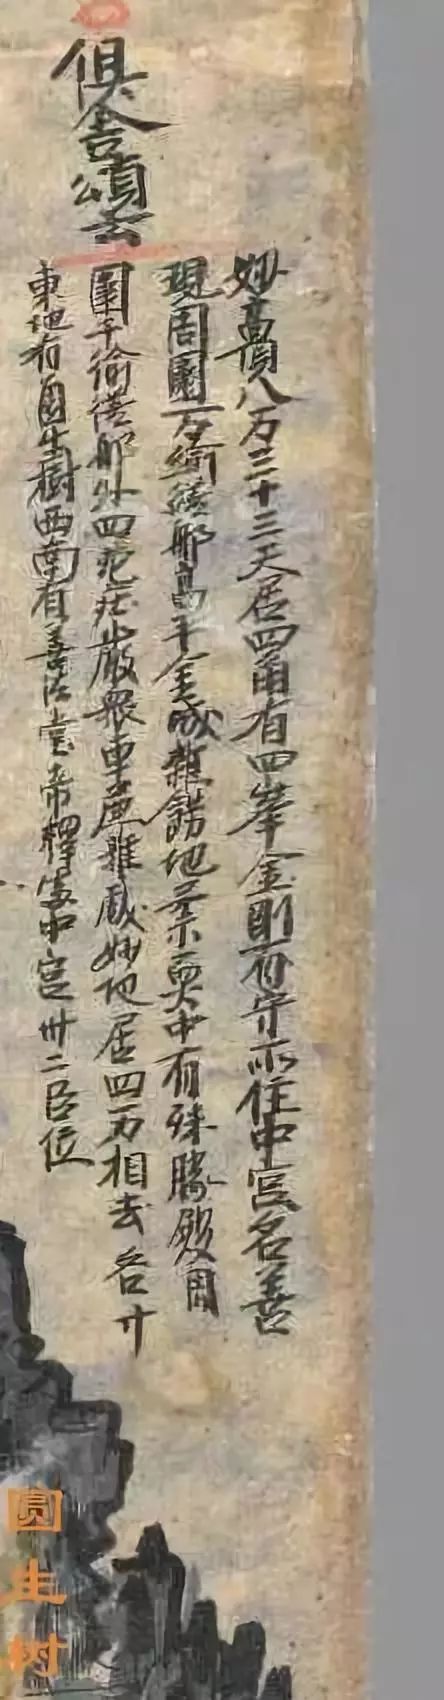 俱舍頌云
妙高頂八万三十三天居四角有四峯金剛守亦住中宮名善
現周圍一万踰繕那高千金城雜餝地柔耎中有殊勝殿周
圍千踰繕那外四苑庄嚴衆車麁雜妙地居四万相去各廿
東地有圓生樹西南有善法堂帝釋處中宮卅二臣位
圆生树